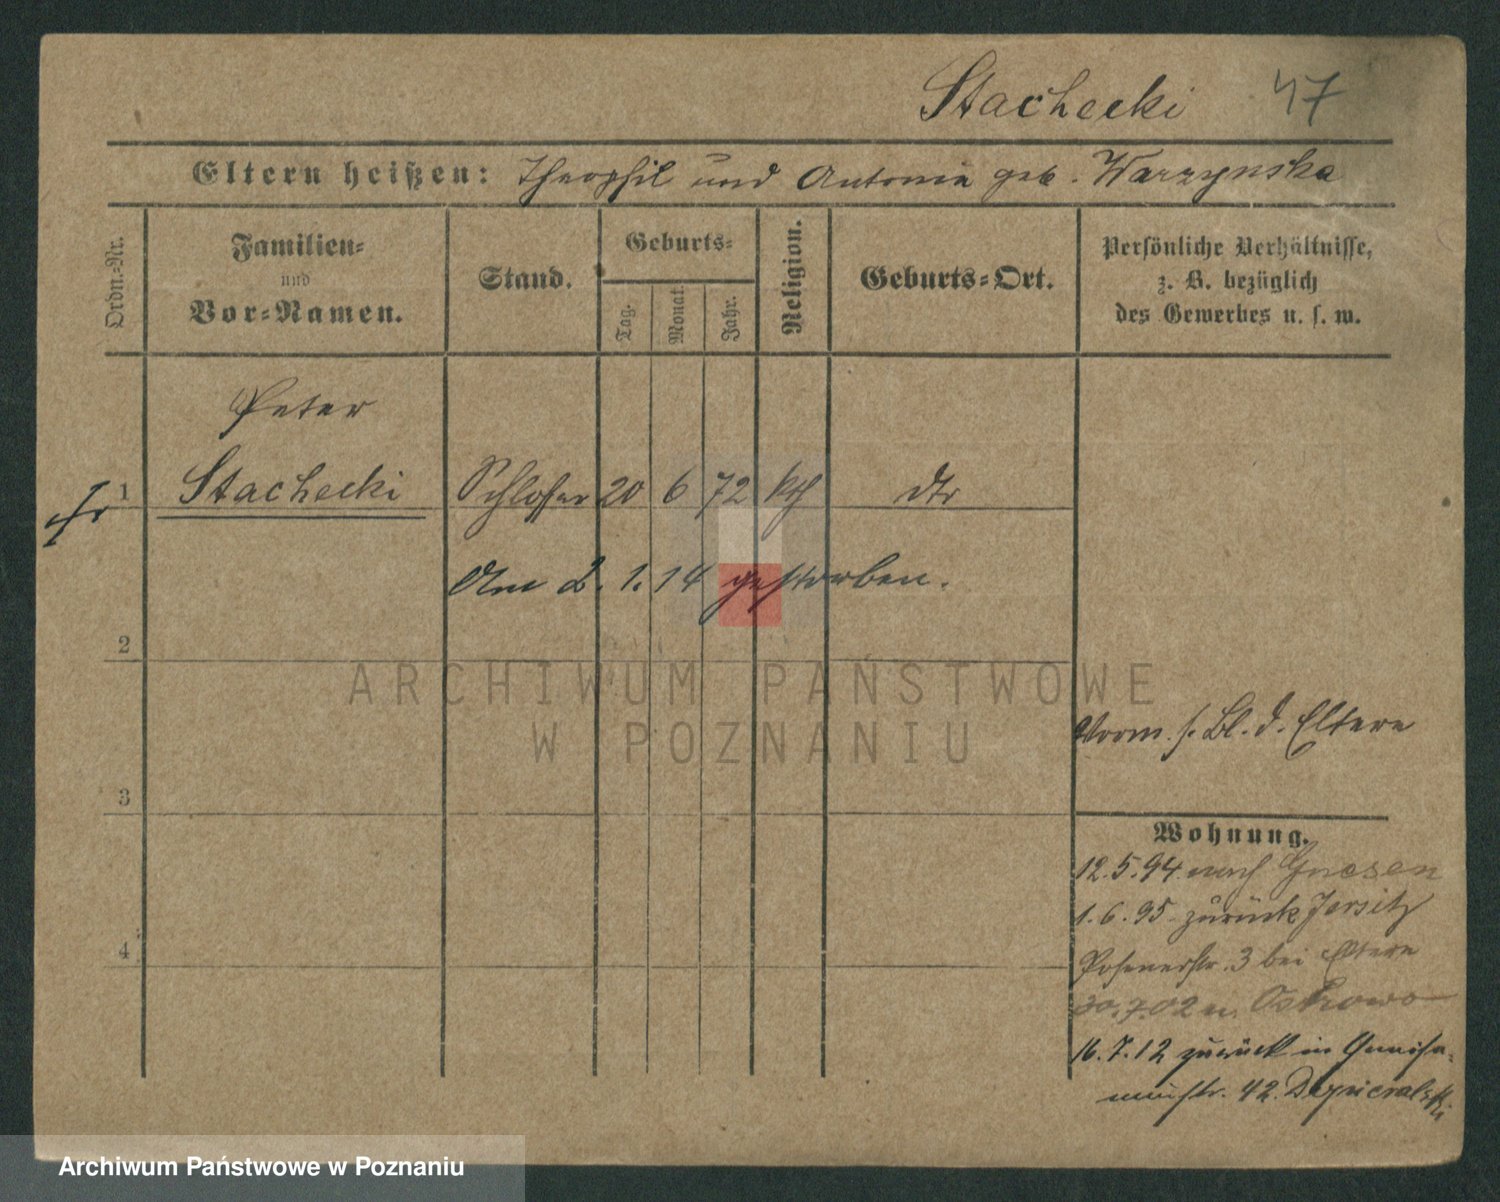 Stachecki 47
Eltern heißen: Theophil und Antonie geb. Warzynska
Ordn.-Nr.
Familien-
und
Vor-Namen.
Stand.
Geburts-
Tag.
Monat
Jahr.
Religion.
Geburts-Ort.
Persönliche Verhältnisse,
z. B. bezüglich
des Gewerbes u. s. w.
Peter
1 Stachecki Schlosser 20 6 72 kth
Am 2. 1. 14 gestorben.
2
ARCHIWUM PAŃSTWOWE
W POZNANIU
Vorm. s. Bl. d. Eltern
3
Wohnung.
12.5.94. nach Gnesen
1.6.95. zurück Jersitz
4
Posenerstr. 3 bei Eltern
30.7.02 n. Ostrowo
16.7.12 zurück in
42.
Archiwum Państwowe w Poznaniu